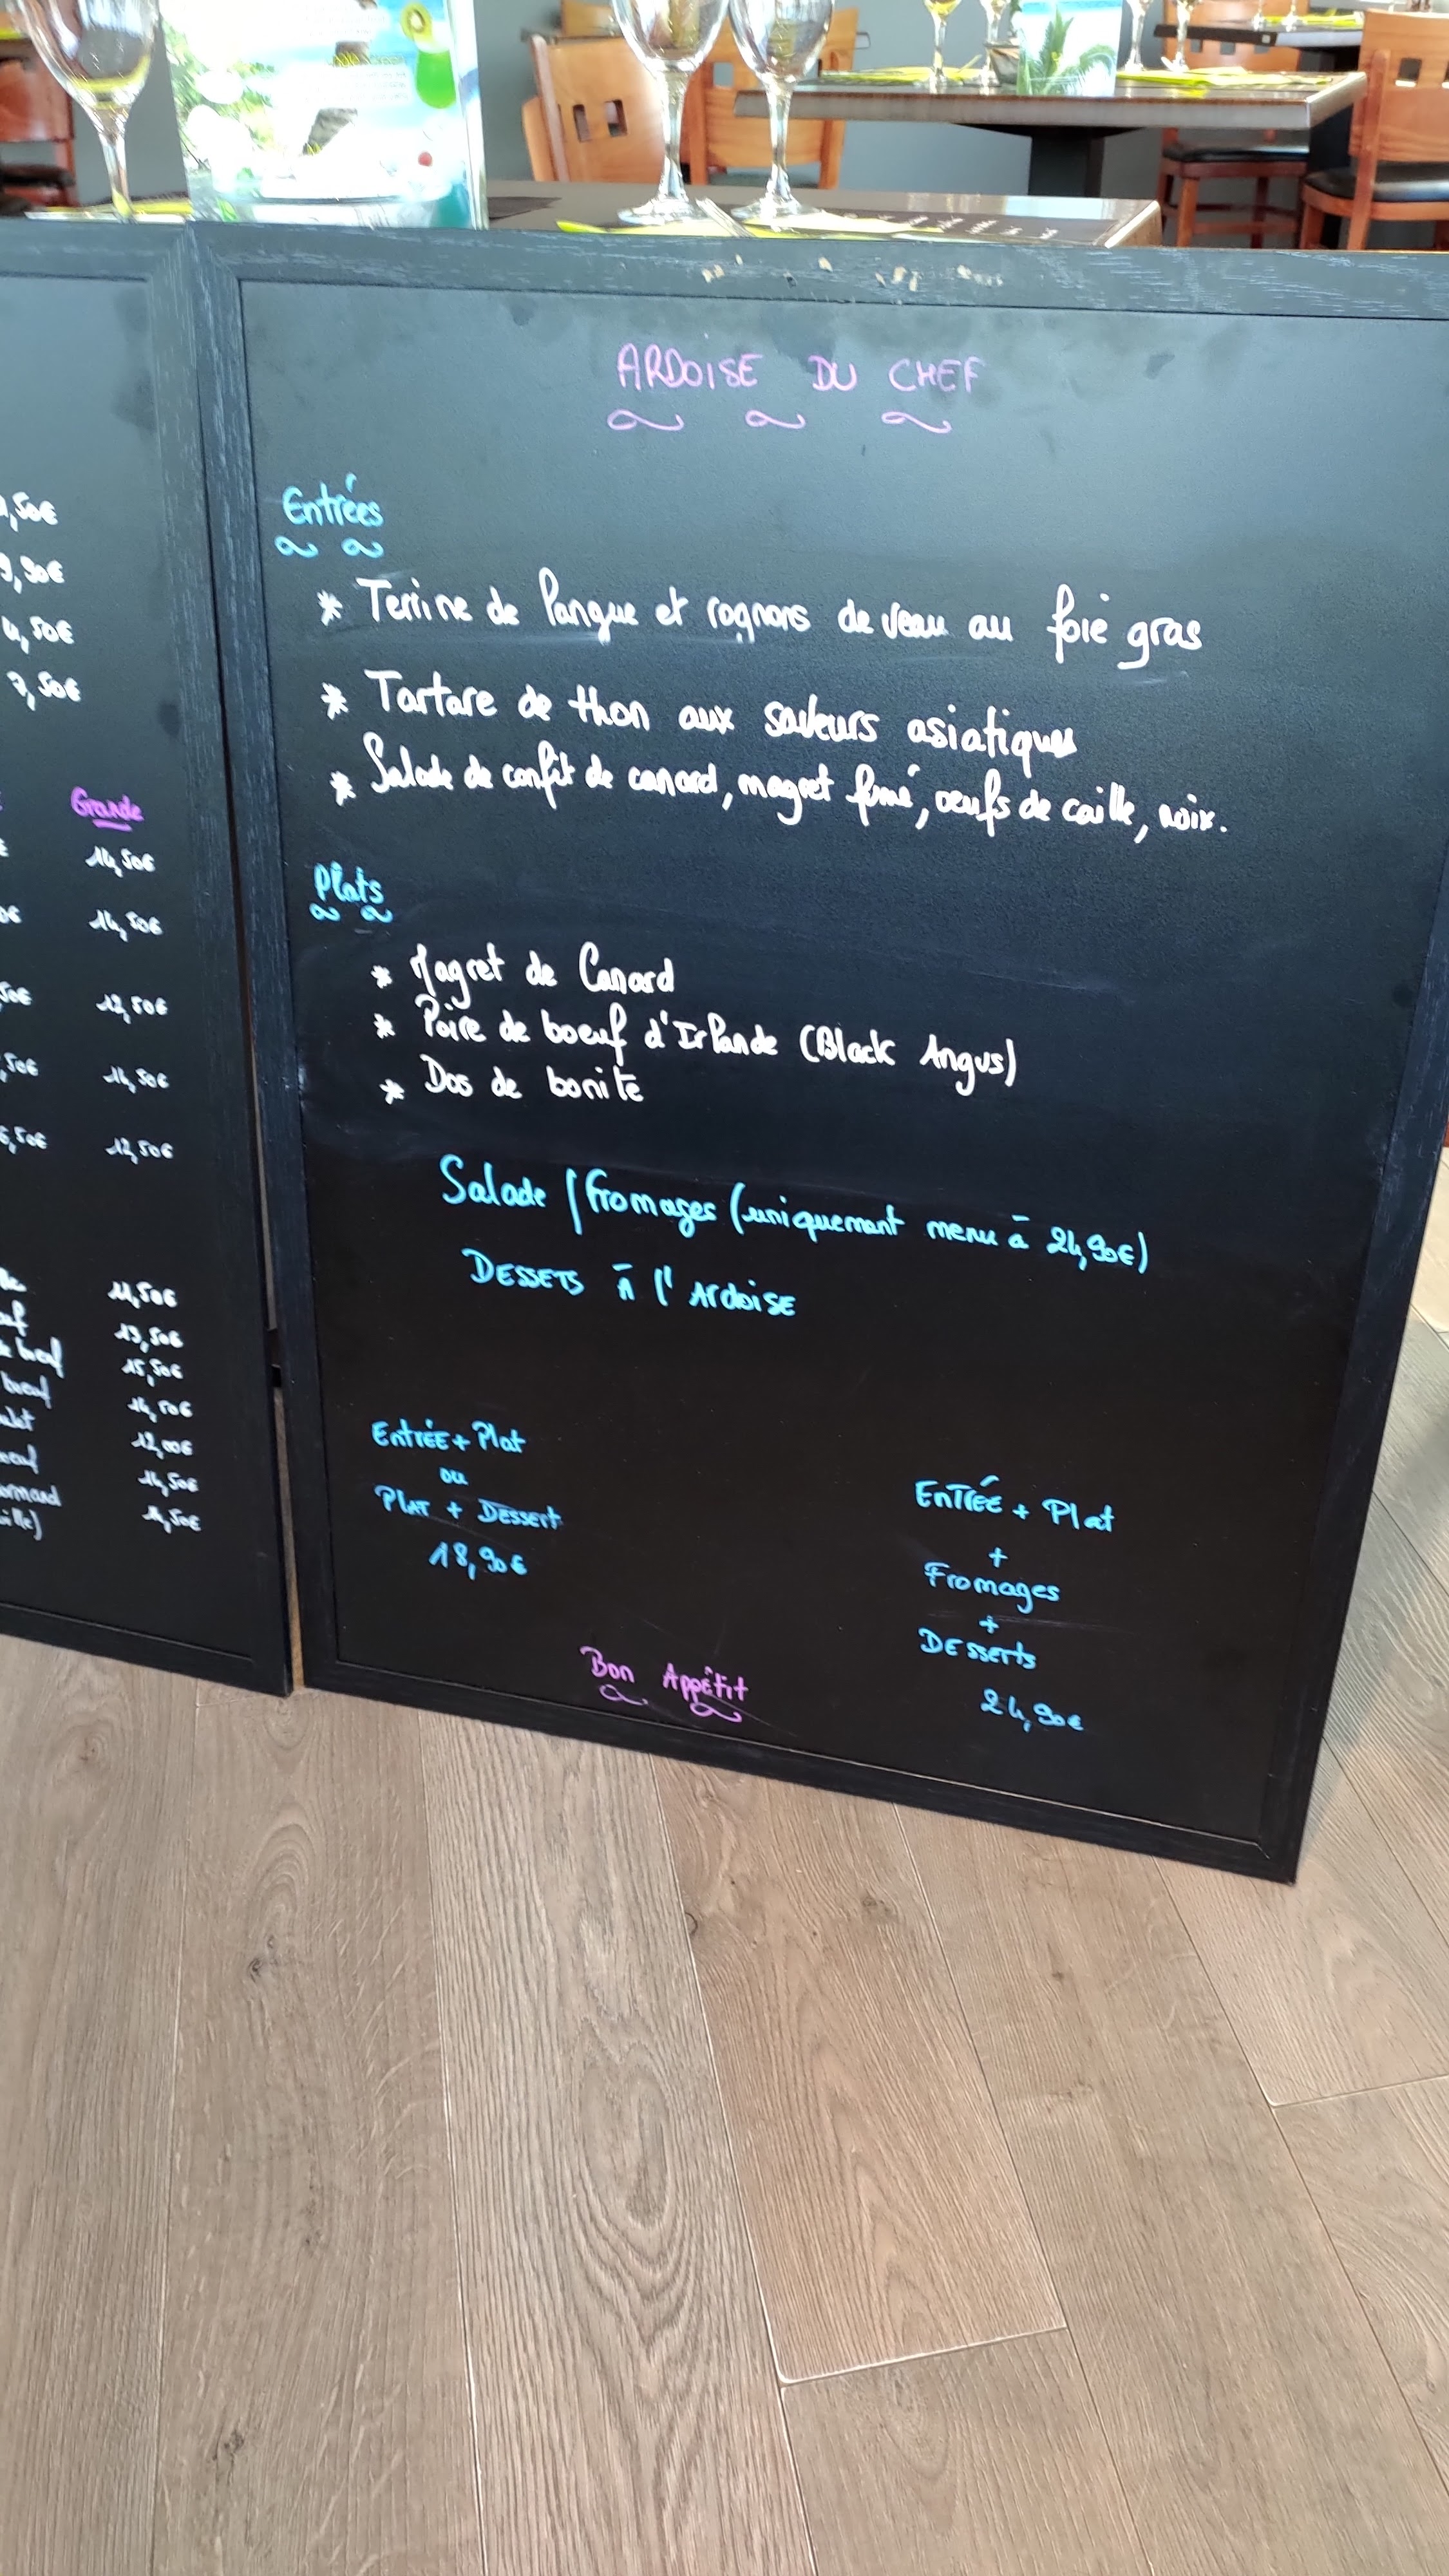 ARDOISE DU CHEF
Entrées
* Terrine de langue et rognons de veau au foie gras
* Tartare de thon aux saveurs asiatiques
* Salade de confit de canard, magret fumé, œufs de caille, noix.
Plats
* Magret de Canard
* Poire de boeuf d'Irlande (Black Angus)
* Dos de bonite
Salade / fromages (uniquement menu à 24,90€)
DESSETS à l'ARDOISE
ENTRÉE + Plat
ou
PLAT + DESSERT
18,90€
ENTRÉE + Plat
+
Fromages
+
DESSERTS
24,90€
Bon Appétit
,50€
9,90€
4,50€
7,50€
Grande
14,50€
14,50€
12,50€
14,50€
12,50€
11,50€
13,50€
15,50€
14,50€
12,00€
14,50€